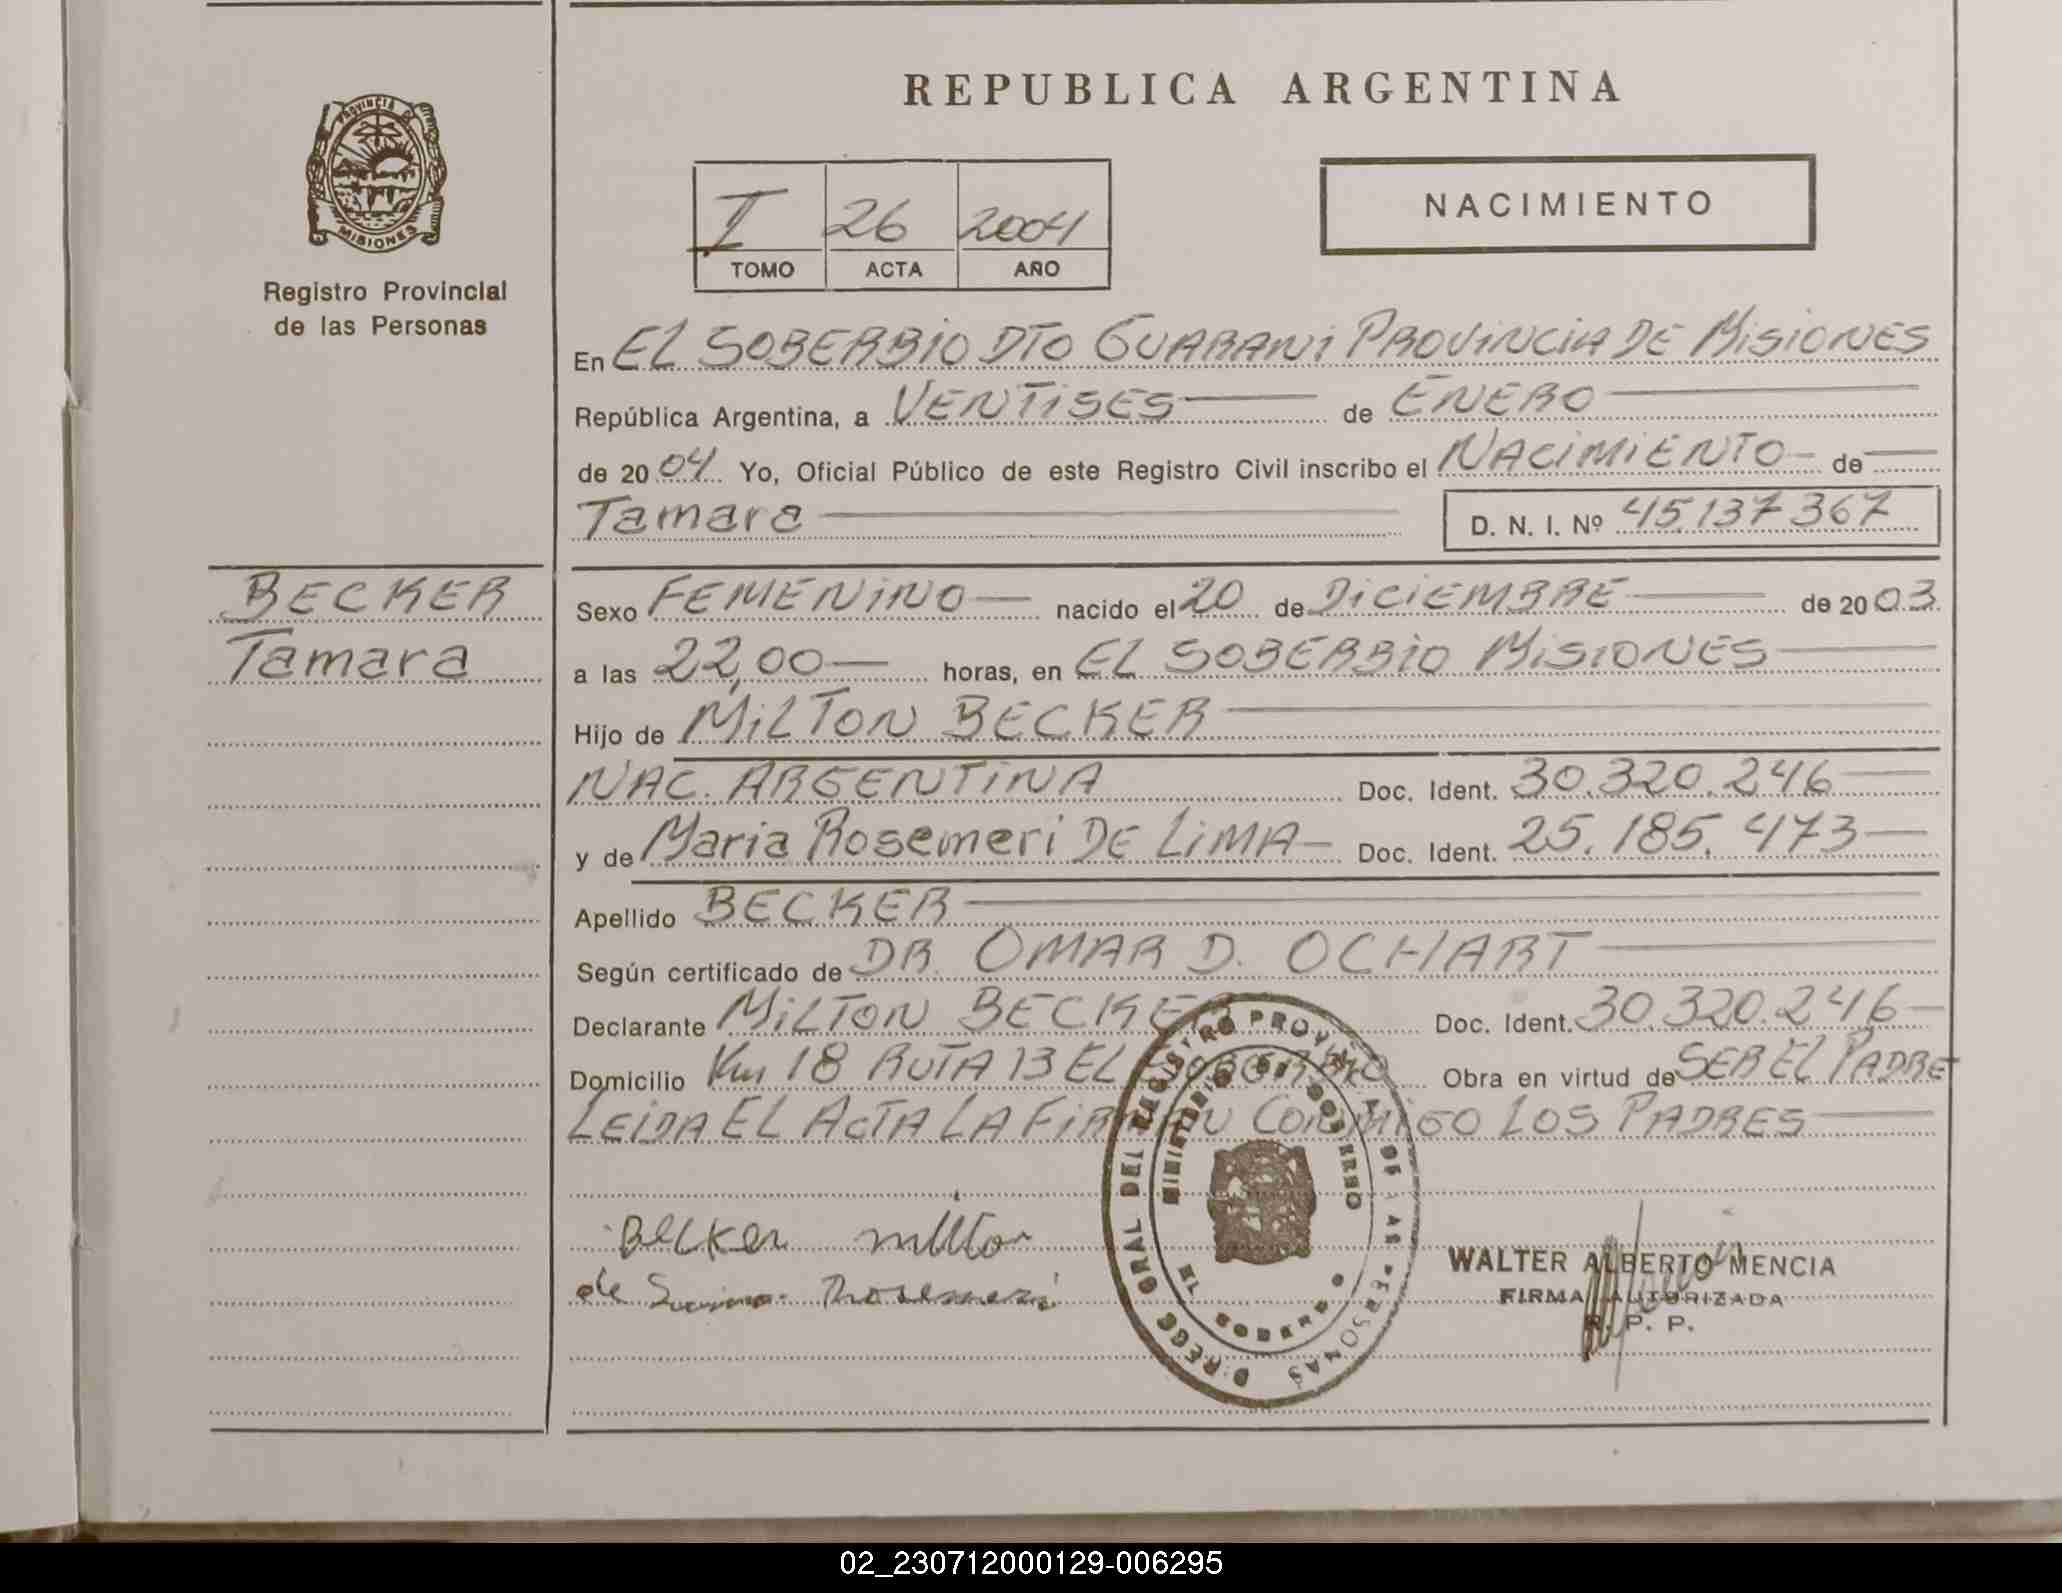 REPUBLICA ARGENTINA
PROVINCIA DE
MISIONES
Registro Provincial
de las Personas
I 26 2004
TOMO ACTA AÑO
NACIMIENTO
En EL SOBERBIO DTO GUARANI PROVINCIA DE MISIONES
República Argentina, a VENTISES de ENERO
de 2004 Yo, Oficial Público de este Registro Civil inscribo el NACIMIENTO de
Tamara D. N. I. Nº 45.137.367
BECKER
Tamara
Sexo FEMENINO nacido el 20 de DICIEMBRE de 2003
a las 22,00 horas, en EL SOBERBIO MISIONES
Hijo de MILTON BECKER
NAC. ARGENTINA Doc. Ident. 30.320.246
y de Maria Rosemeri DE LIMA Doc. Ident. 25.185.473
Apellido BECKER
Según certificado de DR. OMAR D. OCHART
Declarante MILTON BECKER Doc. Ident. 30.320.246
Domicilio Km 18 RUTA 13 EL SOBERBIO Obra en virtud de SER EL PADRE
LEIDA EL ACTA LA FIRMAN CONMIGO LOS PADRES
Becker milton
de Rosemeri
MINISTERIO DE GOBIERNO
WALTER ALBERTO MENCIA
FIRMA AUTORIZADA
R. P. P.
02_230712000129-006295